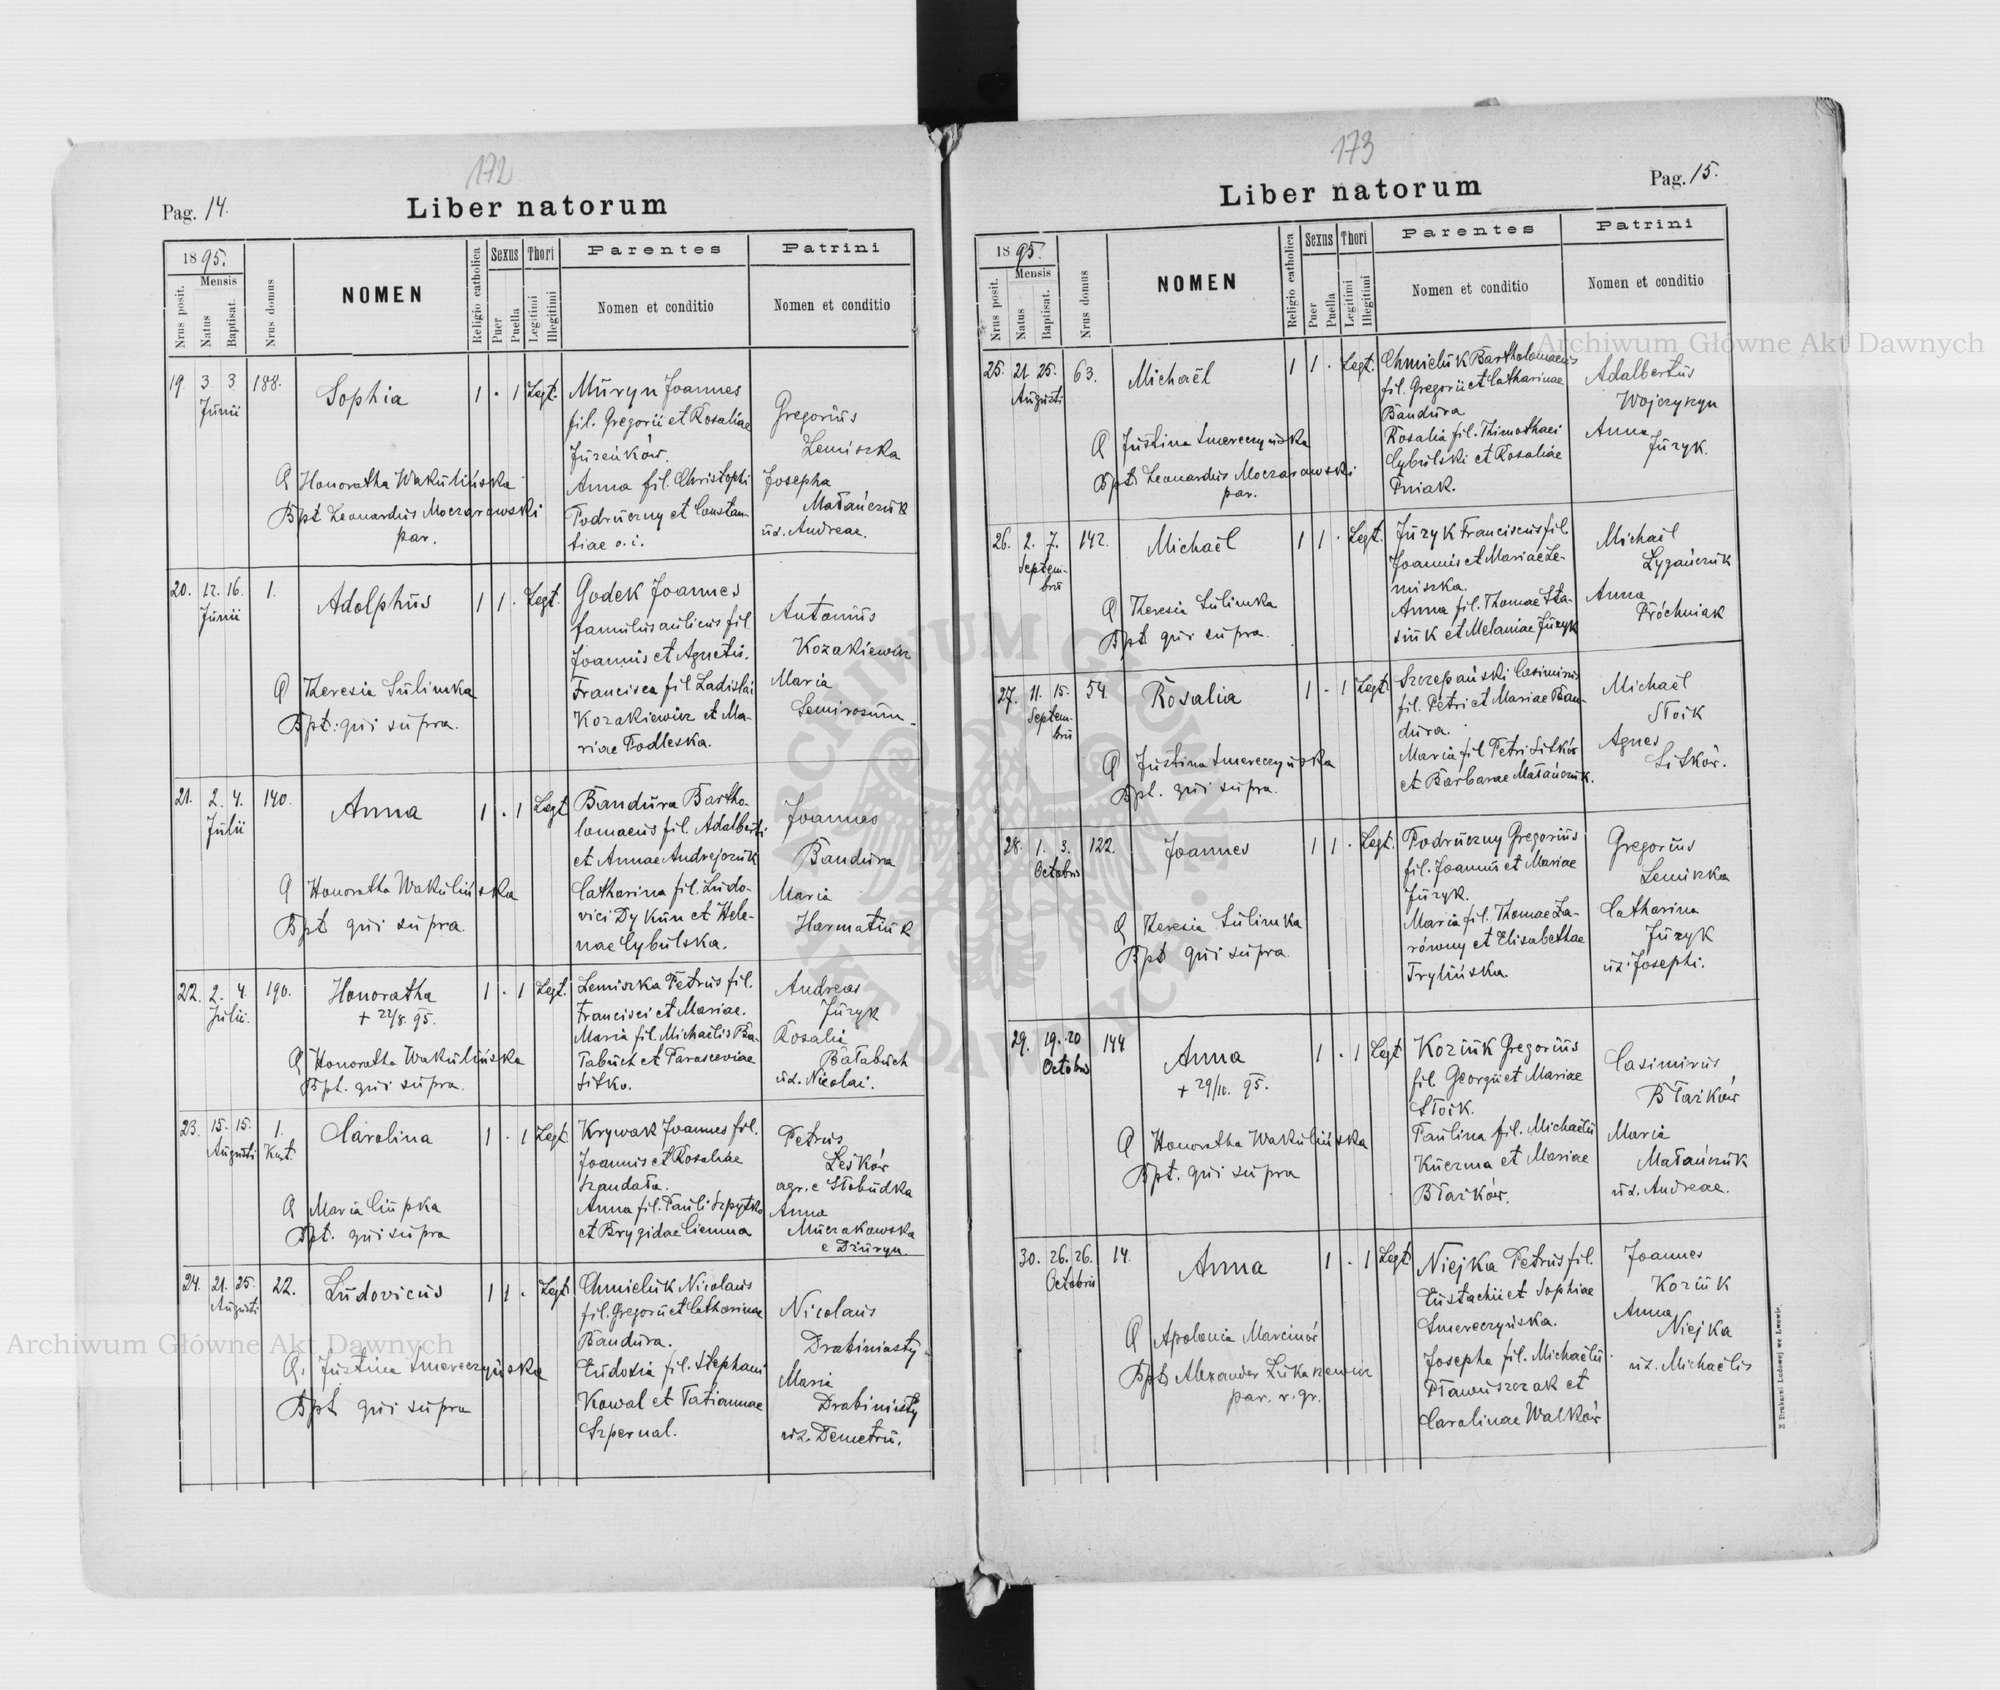 172
Pag. 14.
Liber natorum
1895.
Mensis
Nrus posit.
Natus
Baptisat.
Nrus domus
NOMEN
Religio catholica
Sexus
Puer
Puella
Thori
Legitimi
Illegitimi
Parentes
Nomen et conditio
Patrini
Nomen et conditio
19. 3. 3. 188. Sophia 1 . 1 Legt.
Junii
Honoratha Wakulińska
Bpt Leonardus Moczarowski
par.
Muryn Joannes
fil. Gregorii et Rosaliae
Jureńków.
Anna fil. Christophi
Podruczny et Constan-
tiae o. i.
Gregorius
Lemiszka
Josepha
Małańczuk
ux. Andreae.
20. 12. 16. 1. Adolphus 1 1 . Legt.
Junii
Theresia Sulimka
Bpt. qui supra.
Godek Joannes
famulus aulicus fil.
Joannis et Agnetis.
Francisca fil Ladislai
Kozakiewicz et Ma-
riae Podleska.
Antonius
Kozakiewicz
Maria
21. 2. 4. 140. Anna 1 . 1 Legt
Julii
Honoratha Wakulińska
Bpt qui supra
Bandura Bartho-
lomaeus fil. Adalberti
et Annae Andrejczuk
Catharina fil. Ludo-
vici Dykun et Hele-
nae Cybulska.
Joannes
Bandura
Maria
Harmatiuk
22. 2. 4. 190. Honoratha 1 . 1 Legt.
Julii.
+ 22/8. 95.
Honoratha Wakulińska
Bpt. qui supra.
Lemiszka Petrus fil.
Francisci et Mariae.
Maria fil. Michaëlis Ba-
łabuch et Parasceviae
Sitko.
Andreas
Juzyk
Rosalia
Bałabuch
ux. Nicolai.
23. 15. 15. 1. Carolina 1 . 1 Legt.
Augusti Kust.
Maria Ciupka
Bpt. qui supra
Krywak Joannes fil.
Joannis et Rosaliae
Szandała.
Anna fil. Pauli Szpytko
et Brygidae Ciemna
Petrus
Leśków
agr. e Słobudka
Anna
Muczakowska
e Dżuryn
24. 21. 25. 22. Ludovicus 1 1 . Legt
Augusti
Justina Smereczyńska
Bpt qui supra
Chmieluk Nicolaus
fil. Gregorii et Catharinae
Bandura.
Eudoxia fil. Stephani
Kowal et Tatiannae
Szpernal.
Nicolaus
Drabiniasty.
Maria
Drabiniasty
ux. Demetrii.
173
Pag. 15.
Liber natorum
1895.
Mensis
Nrus posit.
Natus
Baptisat.
Nrus domus
NOMEN
Religio catholica
Sexus
Puer
Puella
Thori
Legitimi
Illegitimi
Parentes
Nomen et conditio
Patrini
Nomen et conditio
25. 21. 25. 63. Michaël 1 1 . Legt.
Augusti
Justina Smereczyńska
Bpt Leonardus Moczarowski
par.
Chmieluk Bartholomaeus
fil. Gregorii et Catharinae
Bandura
Rosalia fil. Thimothaei
Cybulski et Rosaliae
Pniak.
Adalbertus
Wojczyzyn
Anna
Juzyk.
26. 2. 7. 142. Michaël 1 1 . Legt.
Septem-
bris
Theresia Sulimka
Bpt qui supra.
Juzyk Franciscus fil.
Joannis et Mariae Le-
miszka.
Anna fil. Thomae Sta-
siuk et Melaniae Juzyk
Michaël
Lygańczuk
Anna
Próchniak
27. 11. 15. 54. Rosalia 1 . 1 Legt
Septem-
bris
Justina Smereczyńska
Bpt. qui supra.
Szczepański Casimirus
fil. Petri et Mariae Ban-
dura.
Maria fil Petri Sitków
et Barbarae Małańczuk.
Michaël
Stoik
Agnes
Sitków.
28. 1. 3. 122. Joannes 1 1 . Legt.
Octobris
Theresia Sulimka
Bpt qui supra
Podruczny Gregorius
fil. Joannis et Mariae
Juzyk.
Maria fil. Thomae Za-
równy et Elisabethae
Trylińska.
Gregorius
Lemiszka
Catharina
Juzyk
ux. Josephi.
29. 19. 20 144 Anna 1 . 1 Legt
Octobris
+ 29/10. 95.
Honoratha Wakulińska
Bpt. qui supra
Koziuk Gregorius
fil. Georgii et Mariae
Stoik.
Paulina fil. Michaëlis
Kuczma et Mariae
Błażków.
Casimirus
Błażków
Maria
Małańczuk
ux. Andreae.
30. 26. 26. 14. Anna 1 . 1 Legt
Octobris
Apolonia Marcinów
Bpt Alexander Łukaszewicz
par. r. gr.
Niejka Petrus fil.
Eustachii et Sophiae
Smereczyńska.
Josepha fil. Michaëlis
Pławuszczak et
Carolinae Walków
Joannes
Koziuk
Anna
Niejka
ux. Michaëlis
Z Drukarni Ludowej we Lwowie.
Archiwum Główne Akt Dawnych
Archiwum Główne Akt Dawnych
ARCHIWUM GŁÓWNE AKT DAWNYCH